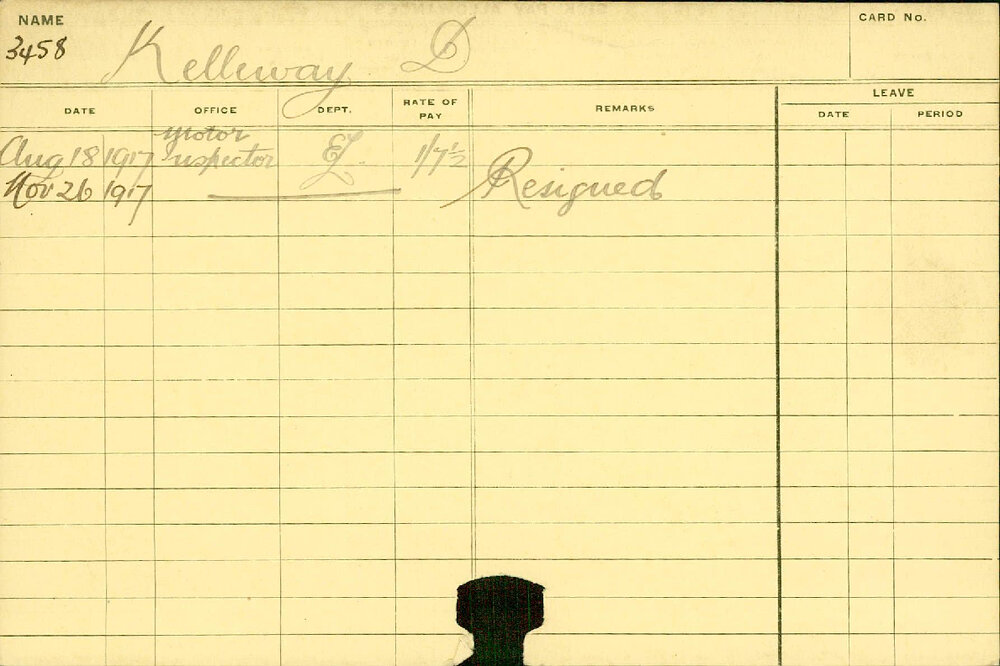 NAME
CARD No.
3458
Kelleway D
DATE OFFICE DEPT. RATE OF PAY REMARKS LEAVE
DATE PERIOD
Aug 18 1917 Motor Inspector 1/7½
Nov 26 1917 Resigned